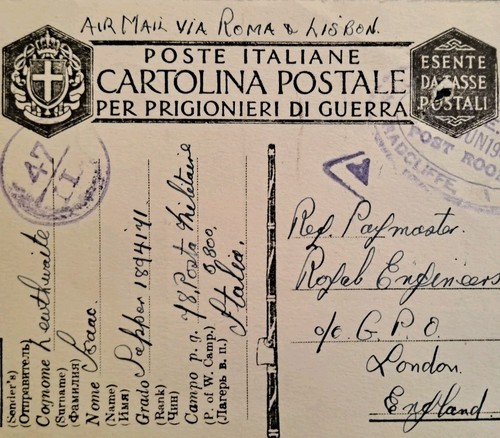 AIR MAIL VIA ROMA & LISBON.
POSTE ITALIANE
CARTOLINA POSTALE
PER PRIGIONIERI DI GUERRA
ESENTE
DA TASSE
POSTALI
47
II
UN19
POST ROO
RADCLIFFE
A
(Sender's)
(Отправитель)
Cognome Lewthwaite
(Surname)
(Фамилия)
Nome Isaac.
(Name)
(Имя)
Grado Sapper 1894141
(Rank)
(Чин)
Campo p. g. 78 Posta Militaire
(P. of W. Camp.) 3,800,
(Лагерь в. п.) Italia.
Reg. Paymaster.
Royal Engineers
c/o G. P. O.
London.
England.